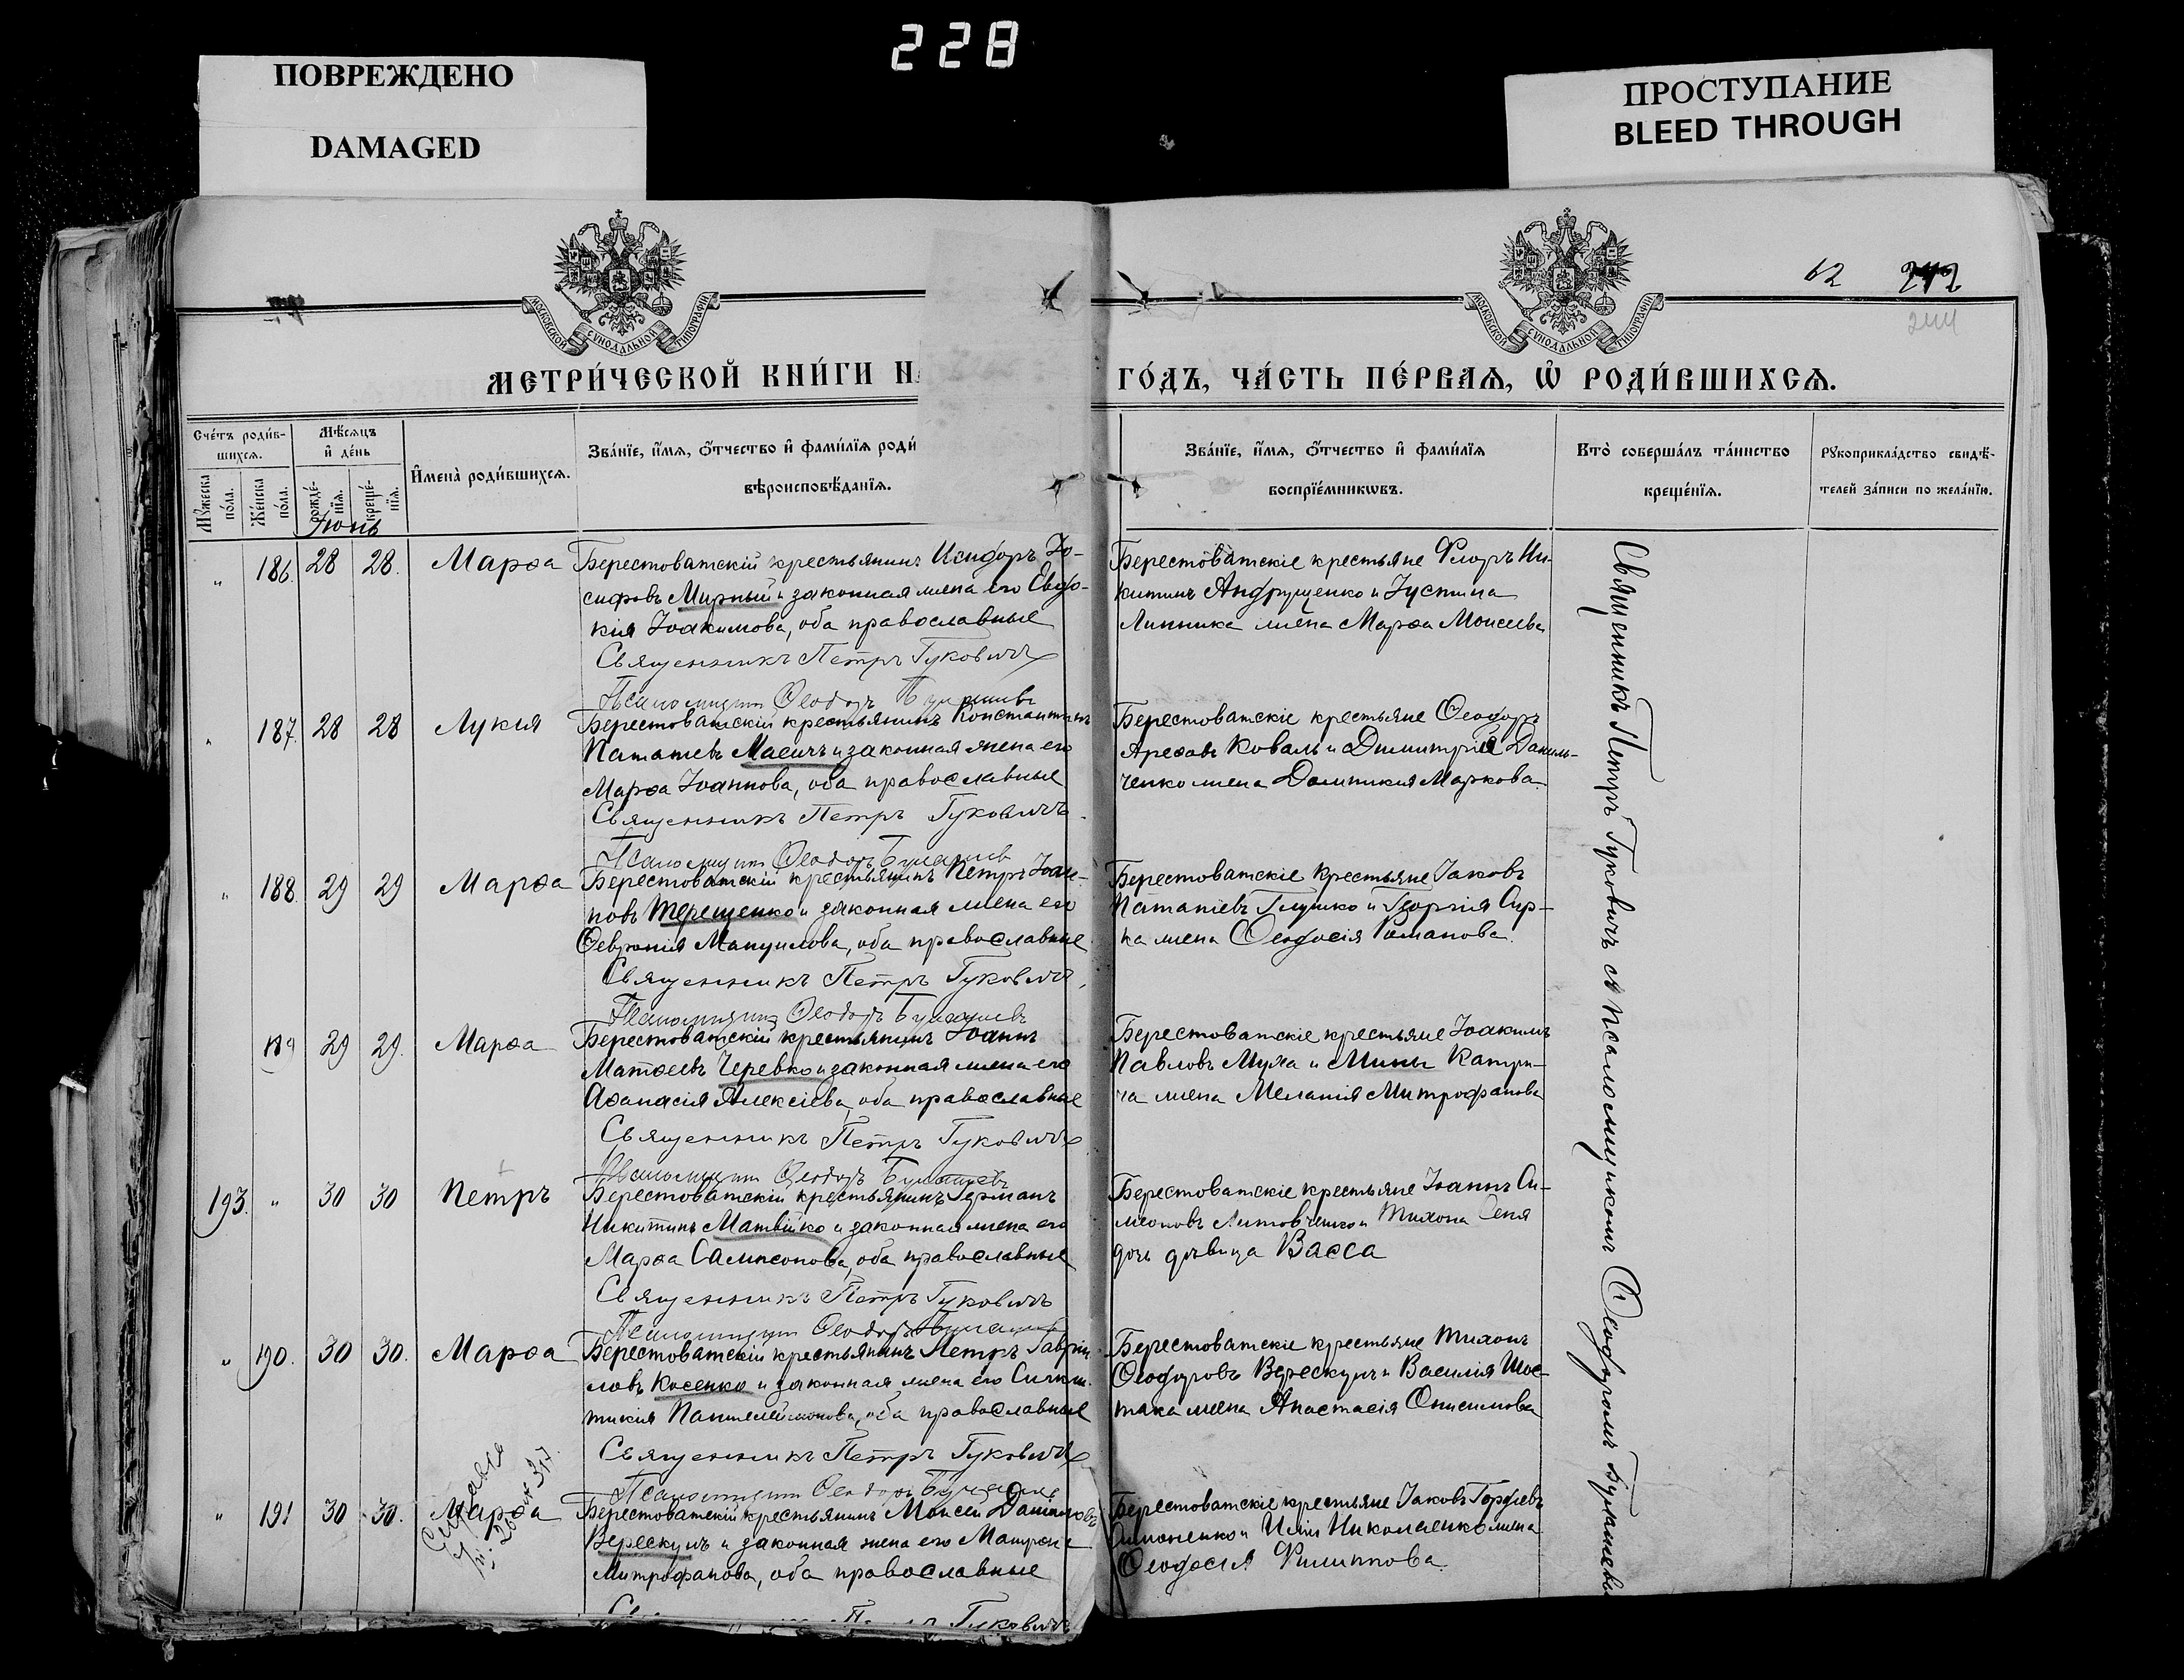 228
ПОВРЕЖДЕНО
DAMAGED
ПРОСТУПАНИЕ
BLEED THROUGH
МОСКОВСКОЙ СУНОДАЛЬНОЙ ТИПОГРАФІИ
МОСКОВСКОЙ СУНОДАЛЬНОЙ ТИПОГРАФІИ
12
244
МЕТРИ́ЧЕСКОЙ КНИ́ГИ Н
ГО́ДЪ, ЧА́СТЬ ПЕ́РВАѦ, Ѡ РОДИ́ВШИХСѦ.
Сче́тъ роди́в-
шихсѧ.
Мꙋжеска по́ла.
Же́нска по́ла.
Мѣ́сѧцъ
и҆ де́нь
рожде́-
нїѧ.
креще́-
нїѧ.
И҆мена̀ роди́вшихсѧ.
Зва́нїе, и҆́мѧ, ѻ҆́тчество и҆ фами́лїѧ роди
вѣроисповѣ́данїѧ.
Зва́нїе, и҆́мѧ, ѻ҆́тчество и҆ фами́лїѧ
воспрїе́мникѡвъ.
Кто̀ соверша́лъ та́инство
креще́нїѧ.
Рꙋкоприкла́дство свидѣ́-
телей за́писи по жела́нїю.
Іюнь
" 186. 28 28. Марѳа
Берестоватскій крестьянинъ Исидоръ Іо-
сифовъ Мирный и законная жена его Евдо-
кія Іоакимова, оба православные
Священникъ Петръ Гуковичъ
Псаломщикъ Ѳеодоръ
Берестоватскіе крестьяне Флоръ Ни-
китинъ Андрущенко и Іустина
Линника жена Марѳа Моисеева
" 187. 28 28 Лукія
Берестоватскій крестьянинъ Константинъ
Паталіевъ Маеичъ и законная жена его
Марѳа Іоаннова, оба православные
Священникъ Петръ Гуковичъ
Псаломщикъ Ѳеодоръ
Берестоватскіе крестьяне Ѳеодоръ
Арефовъ Коваль и Димитрія Даниль-
ченко жена Домникія Маркова
" 188. 29 29 Марѳа
Берестоватскій крестьянинъ Петръ Іоан-
новъ Терещенко и законная жена его
Ѳевронія Мануилова, оба православные
Священникъ Петръ Гуковичъ
Псаломщикъ Ѳеодоръ
Берестоватскіе крестьяне Іаковъ
Патапіевъ Глушко и Георгія Сир-
ка жена Ѳеодосія Романова.
189 29 29. Марѳа
Берестоватскій крестьянинъ Іоаннъ
Матѳеевъ Черевко и законная жена его
Аѳанасія Алексіева, оба православные
Священникъ Петръ Гуковичъ
Псаломщикъ Ѳеодоръ
Берестоватскіе крестьяне Іоакимъ
Павловъ Муха и Мины Катри-
ча жена Меланія Митрофанова
193. " 30 30 Петръ
Берестоватскій крестьянинъ Германъ
Никитинъ Матвійко и законная жена его
Марѳа Сампсонова, оба православные
Священникъ Петръ Гуковичъ
Псаломщикъ Ѳеодоръ
Берестоватскіе крестьяне Іоаннъ Си-
меоновъ Литовченко и Тихона Сеня
дочь дѣвица Васса
" 190. 30 30. Марѳа
Берестоватскій крестьянинъ Петръ Гаврiи-
ловъ Косенко и законная жена его
Пантелеймонова, оба православные
Священникъ Петръ Гуковичъ
Псаломщикъ Ѳеодоръ
Берестоватскіе крестьяне Тихонъ
Ѳеодоровъ Верескунъ и Василія Шос-
така жена Анастасія Онисимова
" 191 30 30. Марѳа
Берестоватскій крестьянинъ Моисей Даніиловъ
Верескунъ и законная жена его Матрона
Митрофанова, оба православные
Петръ Гуковичъ
Берестоватскіе крестьяне Іаковъ Гордіевъ
Симоненко и Иліи Николаенко жена
Ѳеодосія Филиппова
Священникъ Петръ Гуковичъ съ псаломщикомъ Ѳеодоромъ